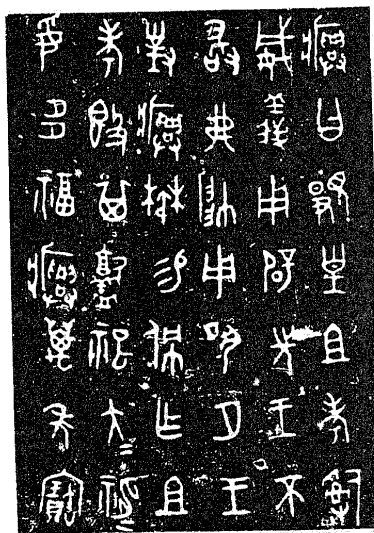 𤼈曰覭皇且考𤔲
威義用辟先王不
敢弗帥用夙夕王
對𤼈楙易佩乍且
考𣪘其𦎫祀大=神=
妥多福𤼈萬年寶